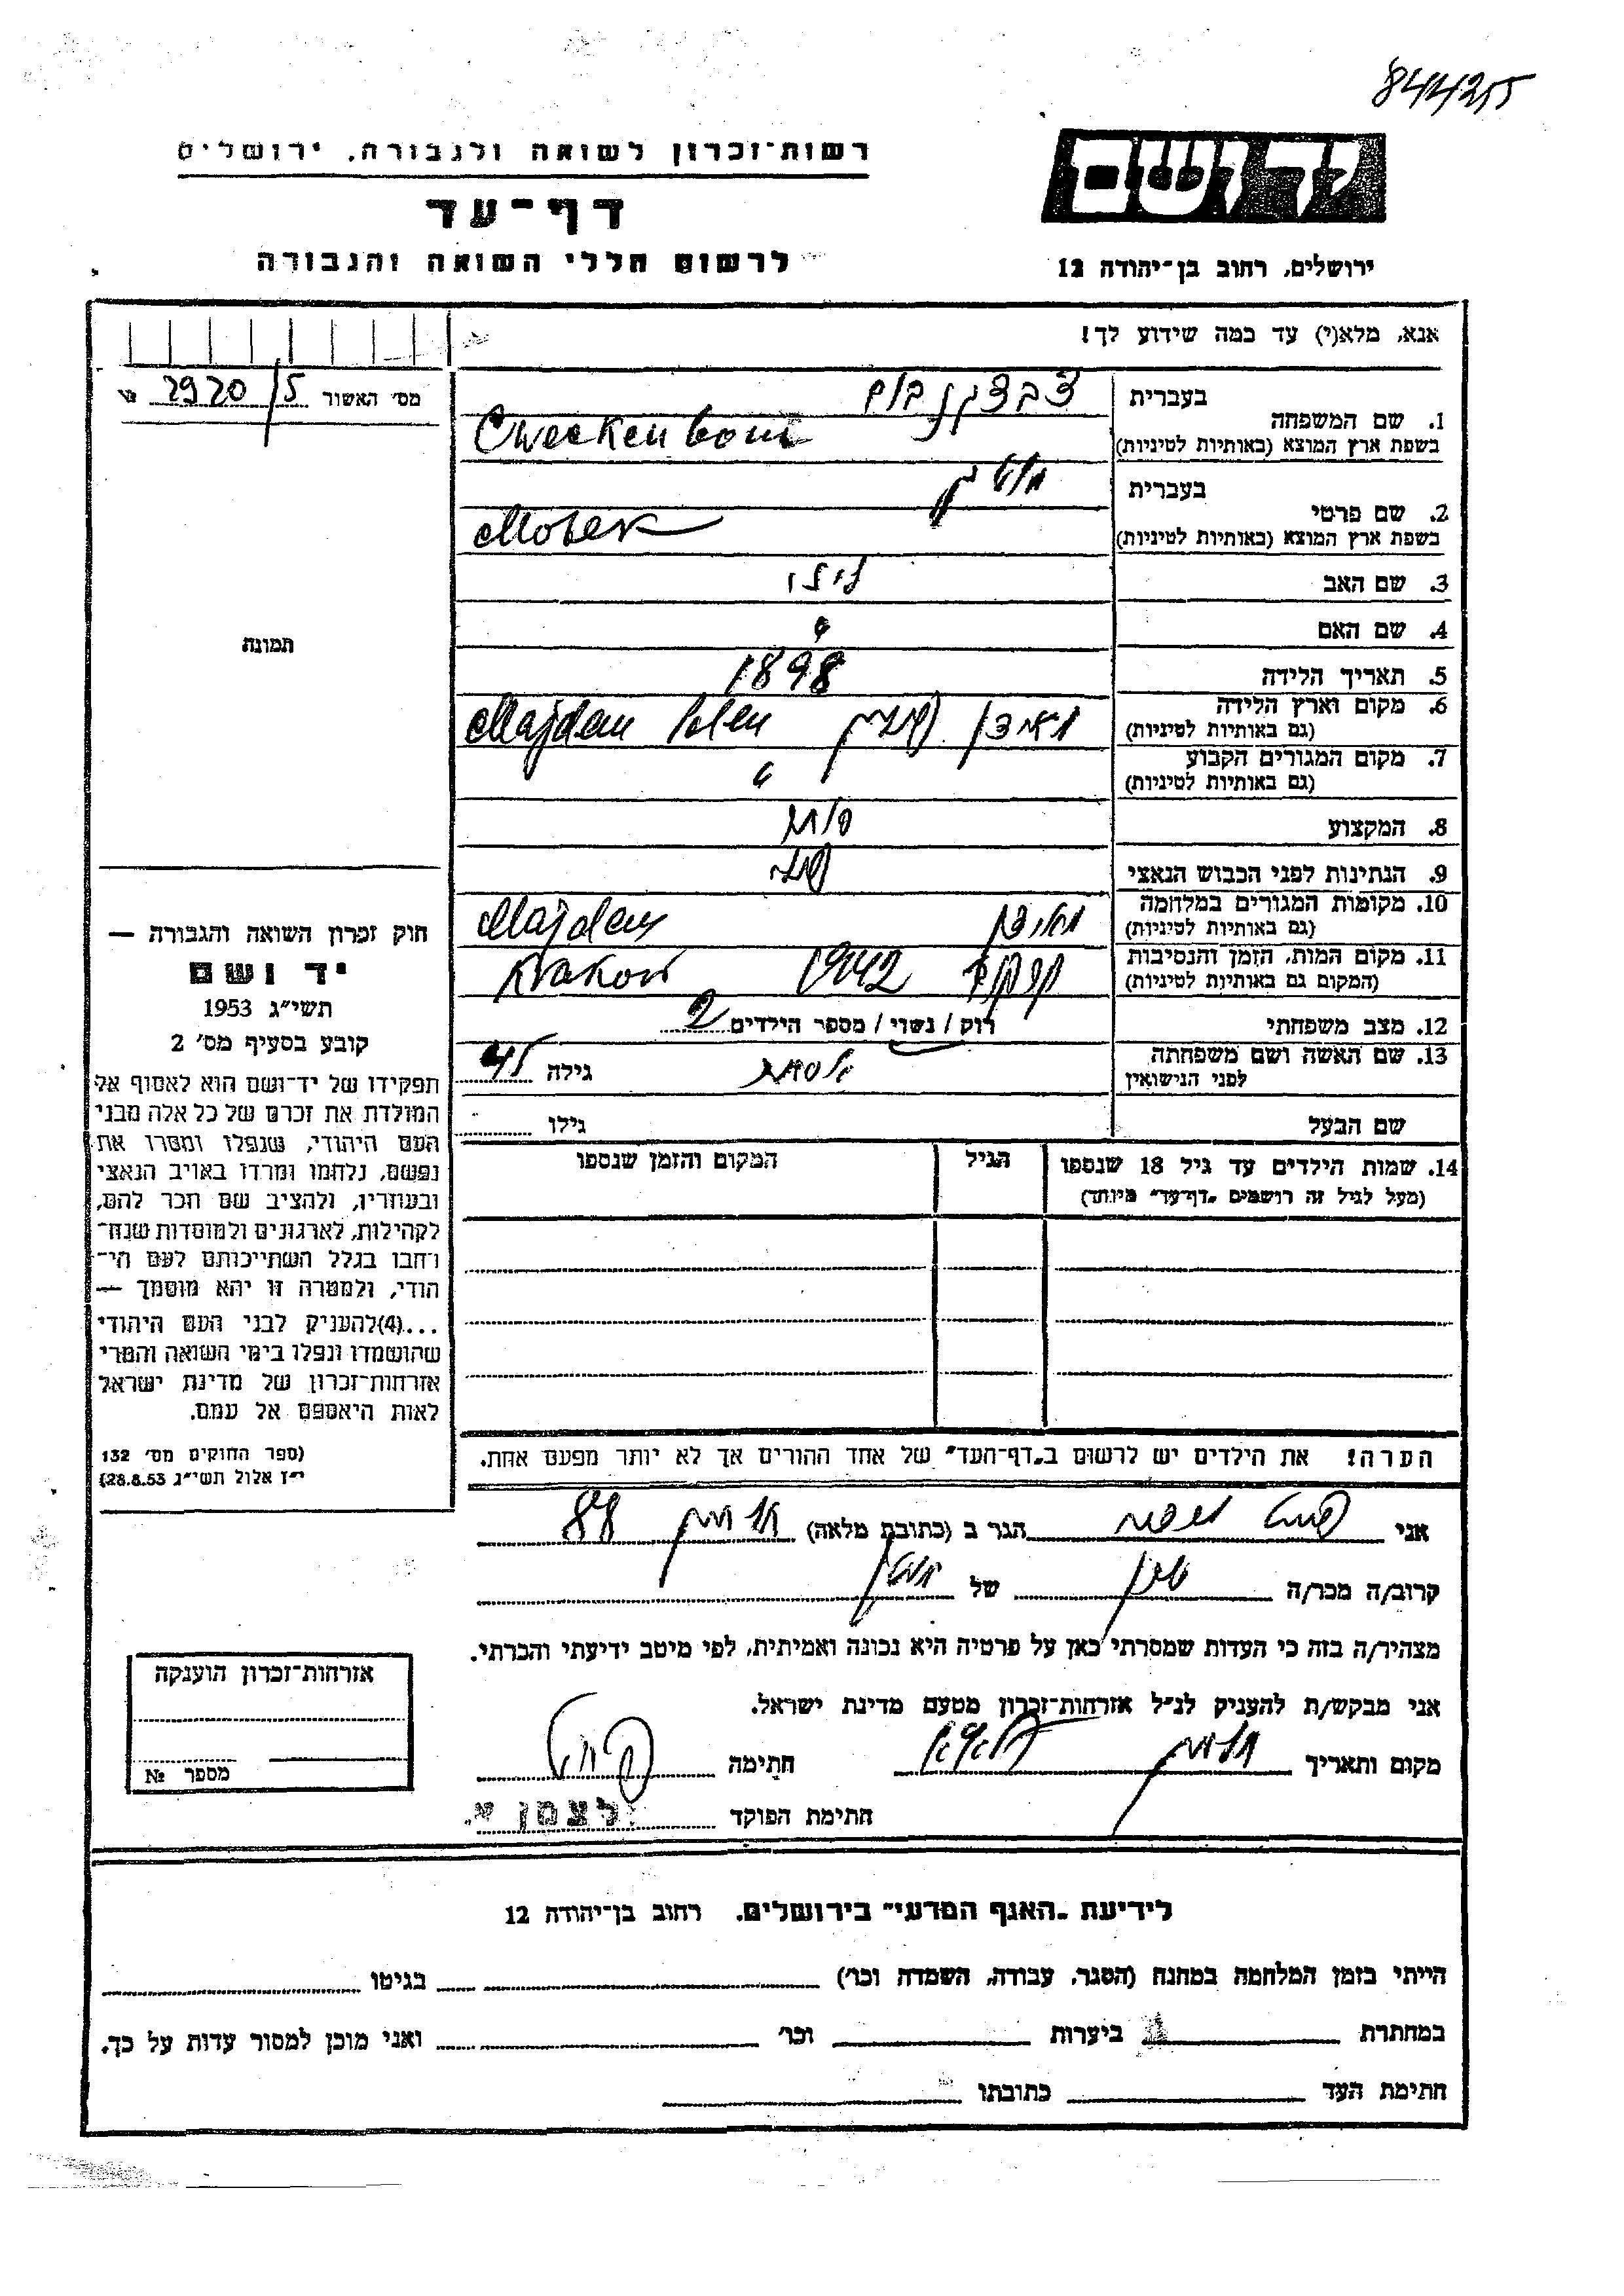 844255
רשות־זכרון לשואה ולגבורה, ירושלים
יד ושם
דף־עד
לרשום חללי השואה והגבורה
ירושלים, רחוב בן־יהודה 12
אנא, מלא(י) עד כמה שידוע לך!
מס׳ האשור 2920/5 №
1. שם המשפחה
בעברית
בשפת ארץ המוצא (באותיות לטיניות) Cweekenbom
2. שם פרטי
בעברית
בשפת ארץ המוצא (באותיות לטיניות) Moser
3. שם האב
4. שם האם
5. תאריך הלידה 1898
6. מקום וארץ הלידה
(גם באותיות לטיניות) מאידן פולין Majdan Polen
7. מקום המגורים הקבוע
(גם באותיות לטיניות) "
8. המקצוע סוחר
9. הנתינות לפני הכבוש הנאצי פולני
10. מקומות המגורים במלחמה
(גם באותיות לטיניות) מאידן Majdan
11. מקום המות, הזמן והנסיבות
(המקום גם באותיות לטיניות) קרקוב 1942 Krakow
12. מצב משפחתי רוק / נשוי / מספר הילדים 2
13. שם האשה ושם משפחתה
לפני הנישואין אסתר גילה 45
שם הבעל גילו
14. שמות הילדים עד גיל 18 שנספו
(מעל לגיל זה רושמים „דף־עד" מיוחד)
הגיל
המקום והזמן שנספו
הערה! את הילדים יש לרשום ב„דף־העד" של אחד ההורים אך לא יותר מפעם אחת.
תמונה
חוק זכרון השואה והגבורה —
יד ושם
תשי״ג 1953
קובע בסעיף מס׳ 2
תפקידו של יד־ושם הוא לאסוף אל
המולדת את זכרם של כל אלה מבני
העם היהודי, שנפלו ומסרו את
נפשם, נלחמו ומרדו באויב הנאצי
ובעוזריו, ולהציב שם וזכר להם,
לקהילות, לארגונים ולמוסדות שנח־
רבו בגלל השתייכותם לעם הי־
הודי, ולמטרה זו יהא מוסמך —
...(4)להעניק לבני העם היהודי
שהושמדו ונפלו בימי השואה והמרי
אזרחות־זכרון של מדינת ישראל
לאות היאספם אל עמם.
(ספר החוקים מס׳ 132
י״ז אלול תשי״ג 28.8.53)
אני הגר ב (כתובת מלאה) 88
קרוב/ה מכר/ה שכן של
מצהיר/ה בזה כי העדות שמסרתי כאן על פרטיה היא נכונה ואמיתית, לפי מיטב ידיעתי והכרתי.
אני מבקש/ת להעניק לנ״ל אזרחות־זכרון מטעם מדינת ישראל.
מקום ותאריך חתימה
חתימת הפוקד לצמן א.
אזרחות־זכרון הוענקה
מספר №
לידיעת „האגף המדעי" בירושלים, רחוב בן־יהודה 12
הייתי בזמן המלחמה במחנה (הסגר, עבודה, השמדה וכו׳) בגיטו
במחתרת ביערות וכו׳ ואני מוכן למסור עדות על כך.
חתימת העד כתובתו